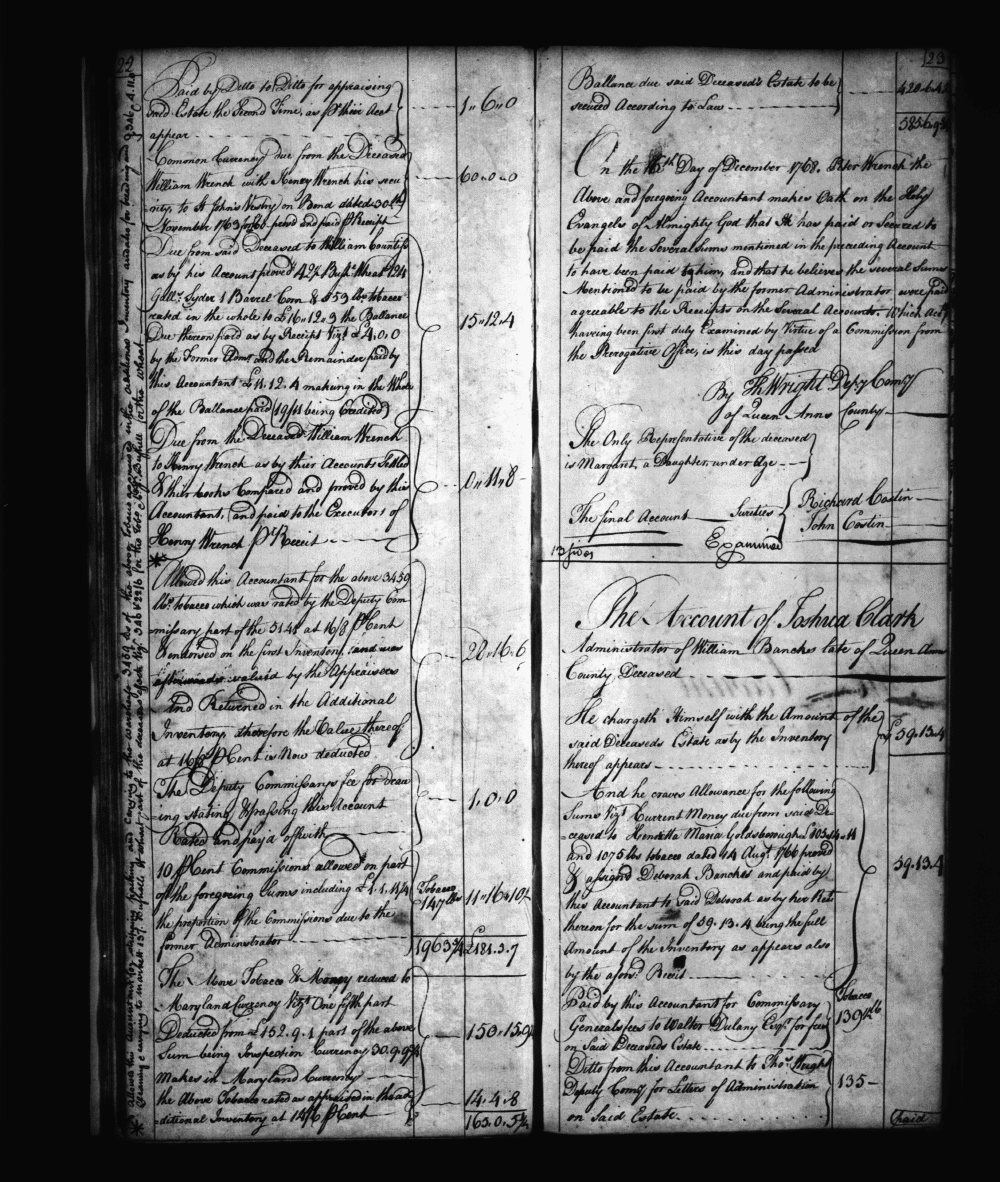 22
Paid by Ditto to Ditto for appraising
said Estate the Second Time, as ℔ their Acct
appear 1,, 6,, 0
Common Currency due from the Deceased
William Wrench with Henry Wrench his secu
rity, to St John's Vestry on Bond dated 30th 60,, 0,, 0
November 1763 paid ℔ Receipt
Due from said Deceased to William Countiss
as by his Account proved 42½ Bush.s Wheat
Gall.s Cyder 1 Barrel Corn & 553 lbs tobacco
rated in the whole to £16,,12,,3 the Ballance
Due thereon paid as by Receipt Vizt £4,,0,,0 15,, 12,, 4
by the Former Admr. and the Remainder paid by
this Accountant £11.12.4 making in the Whole
of the Ballance paid (19/11 being Credited)
Due from the Deceased William Wrench
to Henry Wrench as by their Accounts Settled
& their books Compared and proved by this 0,, 11,, 8
Accountant, and paid to the Executors of
Henry Wrench ℔ Receit
*
Allowed this Accountant for the above 3459
lbs. tobacco which was rated by the Deputy Com
missary part of the 5148 at 16/8 ℔ Cent
& endorsed on the first Inventory, and was 28,, 16,, 6
afterwards valued by the Appraisers
and Returned in the Additional
Inventory, therefore the Value thereof
at 16/8 ℔ Cent is Now deducted
The Deputy Commissarys fee for draw
ing stating & passing this Account 1,, 0,, 0
Rated and payd off with
10 ℔ Cent Commissions allowed on part
of the foregoing Sums including Tobacco
the proportion of the Commissions due to the 147 lbs 11,, 16,, 10½
former Administrator 1963¾ £181.3.7
The Above Tobacco & Money reduced to
Maryland Currency Vizt One fifth part
Deducted from £152.9.1 part of the above 150,, 15,, 9¼
Sum being Inspection Currency 30.9.9¾
makes in Maryland Currency
the Above Tobacco rated as appraised in the ad
ditional Inventory at 14/6 ℔ Cent 14.4.8
165.0.5¼
23
Ballance due said Deceased's Estate to be
secured According to Law
On the 15th Day of December 1768. Peter Wrench the
Above and foregoing Accountant makes Oath on the Holy
Evangels of Almighty God that He has paid or Secured to
be paid the Several Sums mentioned in the preceding Account
to have been paid by him, and that he believes the several Sums
Mentioned to be paid by the former Administrator were paid
agreeable to the Receipts on the Several Accounts. Which Acct
having been first duly Examined by Virtue of a Commission from
the Prerogative Office, is this day passed
By Th Wright Depy Comy
of Queen Anns County
The Only Representative of the deceased
is Margaret, a Daughter, under Age
The final Account Sureties Richard Costin
John Costin
13 sides Examined
The Account of Joshua Clark
Administrator of William Banches late of Queen Anns
County, Deceased
He chargeth Himself with the Amount of the
said Deceaseds Estate as by the Inventory £59.13.4
thereof appears
And he craves Allowance for the following
Sums Vizt Current Money due from said De
ceased to Henrietta Maria Goldsborough £103.14.11
and 1075 lbs tobacco dated 14 Augt. 1766 proved
& assigned Deborah Banches and paid by 59.13.4
this Accountant to Said Deborah as by her Rect
thereon for the sum of 59.13.4 being the full
Amount of the Inventory as appears also
by the aforsd. Receit
Paid by this Accountant for Commissary Tobacco
Generals fees to Walter Dulany Esqr. for fees 139½ lb
on Said Deceaseds Estate
Ditto from this Accountant to Thos. Wright
Deputy Comy for Letters of Administration 135
on Said Estate
paid